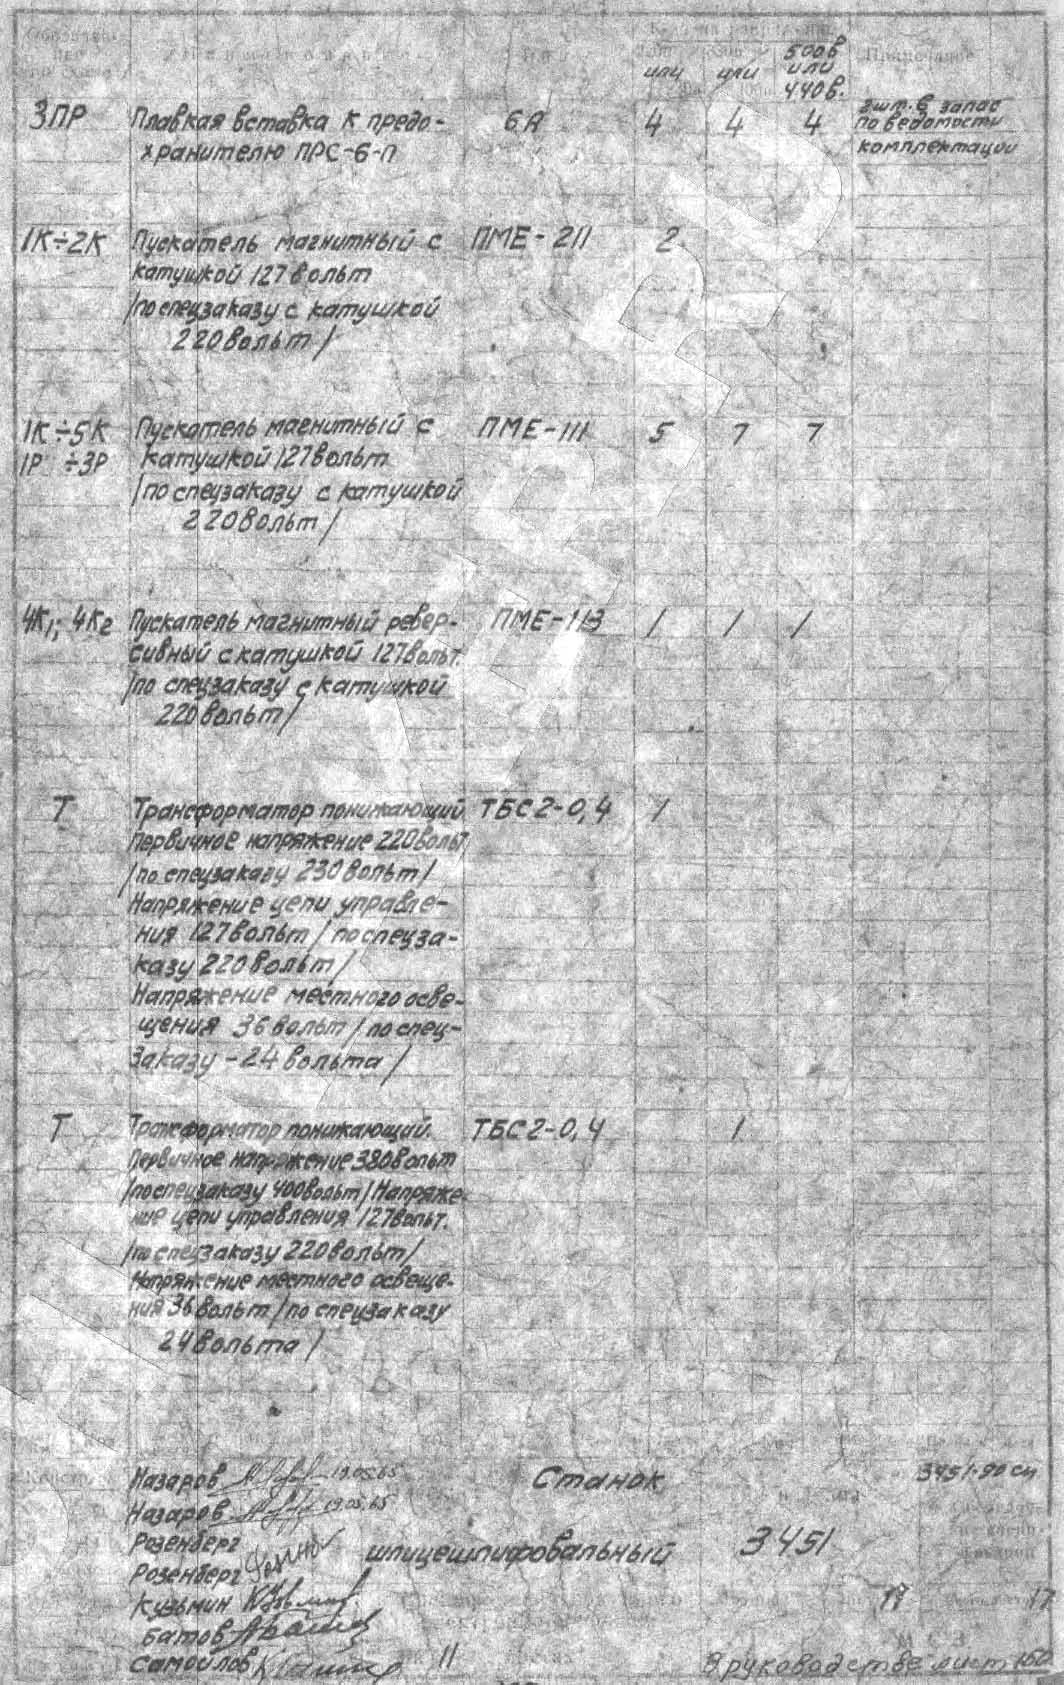 500в
или или или
440в.
3ПР Плавкая вставка к предо- 6А 4 4 4 2шт. в запас
по ведомости
хранителю ПРС-6-П комплектации
1К÷2К Пускатель магнитный с ПМЕ-211 2
катушкой 127 вольт
/по спецзаказу с катушкой
220 вольт/
1К÷5К Пускатель магнитный с ПМЕ-111 5 7 7
1Р ÷3Р катушкой 127 вольт
/по спецзаказу с катушкой
220 вольт/
4К1; 4К2 Пускатель магнитный ревер- ПМЕ-113 1 1 1
сивный с катушкой 127 вольт.
/по спецзаказу с катушкой
220 вольт/
Т Трансформатор понижающий ТБС2-0,4 1
Первичное напряжение 220 вольт
/по спецзаказу 230 вольт/
Напряжение цепи управле-
ния 127 вольт /по спецза-
казу 220 вольт/
Напряжение местного осве-
щения 36 вольт /по спец-
заказу - 24 вольта/
Т Трансформатор понижающий. ТБС2-0,4 1
Первичное напряжение 380 вольт
/по спецзаказу 400 вольт/ Напряже-
ние цепи управления 127 вольт.
/по спецзаказу 220 вольт/
Напряжение местного освеще-
ния 36 вольт /по спецзаказу
24 вольта/
Назаров 19.05.65 Станок 3451-90 сп
Назаров 19.05.65
Розенберг шлицешлифовальный 3451
Розенберг
Кузьмин 17 17
Батов
Самойлов 11 В руководстве лист 160